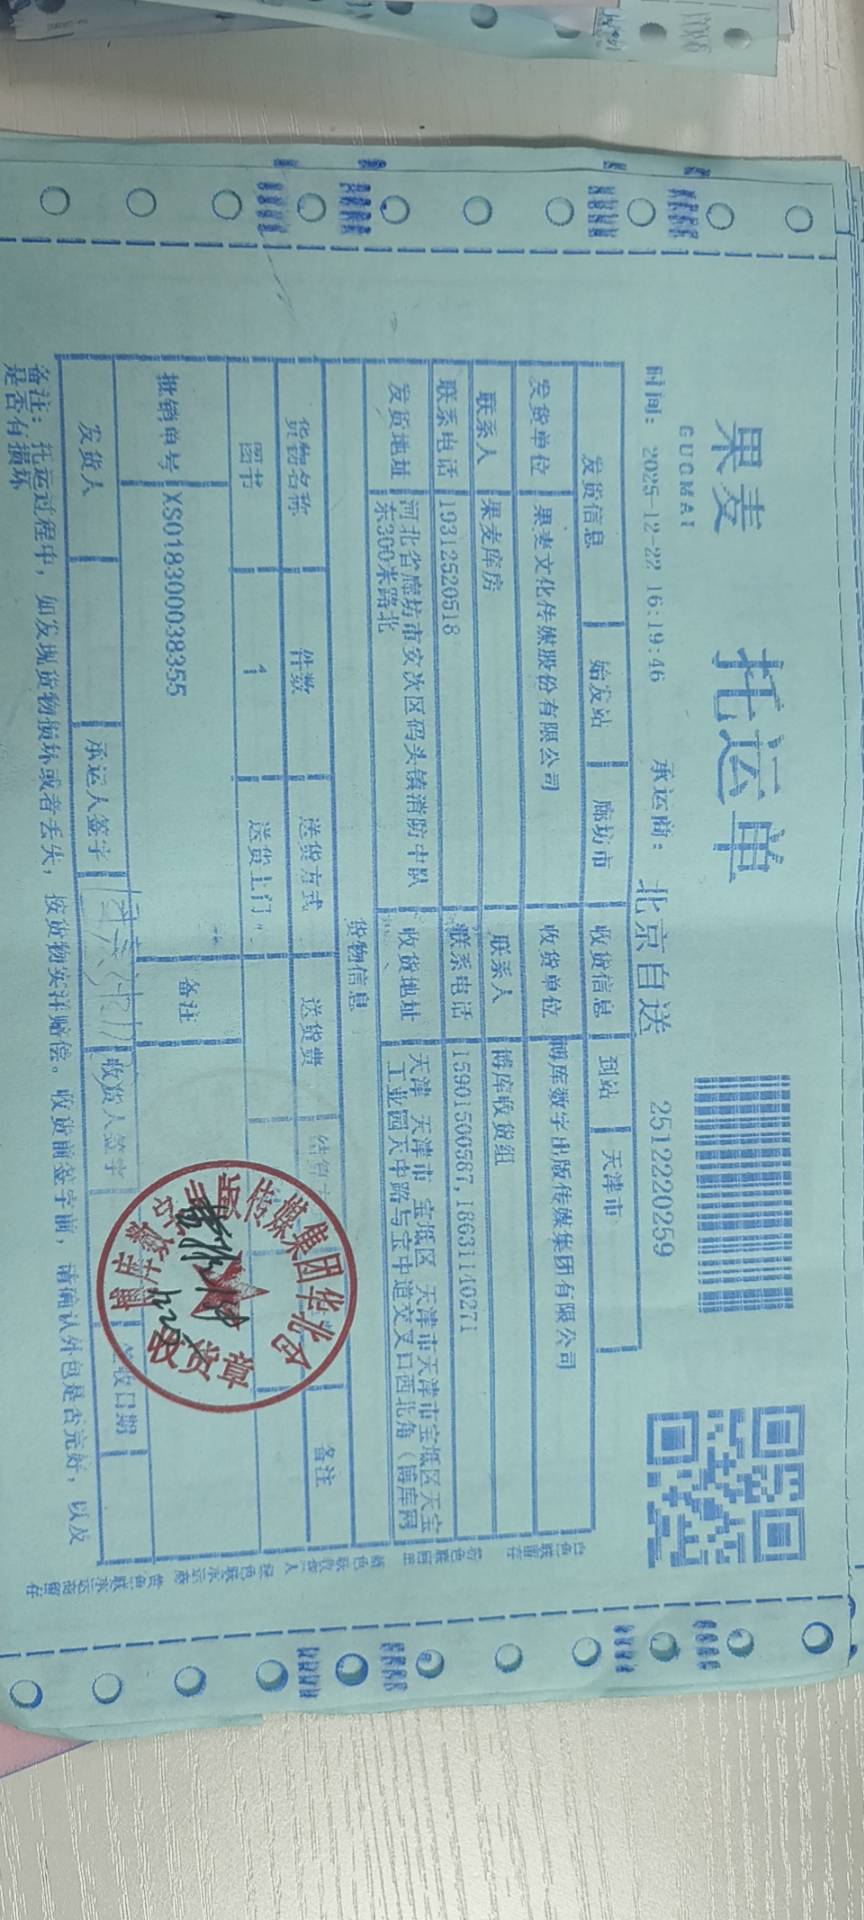 果麦 托运单
GUOMAI
时间: 2025-12-22 16:19:46 承运商: 北京自送 2512220259
发货信息 始发站 廊坊市 收货信息 到站 天津市
发货单位 果麦文化传媒股份有限公司 收货单位 博库数字出版传媒集团有限公司
联系人 果麦库房 联系人 博库收货组
联系电话 19312520518 联系电话 15901500587,18631140271
发货地址 河北省廊坊市安次区码头镇消防中队东300米路北 收货地址 天津 天津市 宝坻区 天津市天津市宝坻区天宝工业园天中路与宝中道交叉口西北角(博库网
货物信息
货物名称 件数 送货方式 送货费 备注
图书 1 送货上门
批销单号 XS018300038355 备注
发货人 承运人签字 收货人签字 签收日期
备注: 托运过程中, 如发现货物损坏或者丢失, 按货物实洋赔偿。收货前签字前, 请确认外包是否完好, 以及
是否有损坏
传媒集团华北仓
收货章